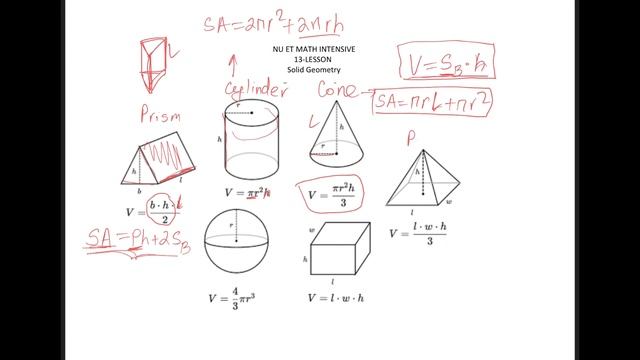 SA=2πr²+2πrh
NU ET MATH INTENSIVE
13-LESSON
Solid Geometry
V=S_B·h
L
Cylinder
Cone
SA=πrL+πr²
Prism
r
h
L
h
r
P
h
b
l
h
l
w
V = (b·h·l)/2
V = πr²h
V = πr²h/3
V = (l·w·h)/3
SA=Ph+2S_B
r
w
h
l
V = 4/3 πr³
V = l·w·h